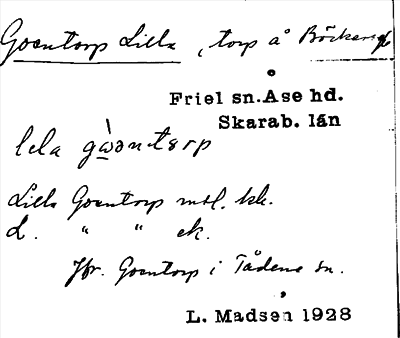 Goentorp Lilla, torp å Böckersg
Friel sn. Åse hd.
Skarab. län
lela gωòntɘrp
Lilla Goentorp mtl. kk.
L. " " ek.
Jfr. Goentorp i Tådene sn.
L. Madsen 1928